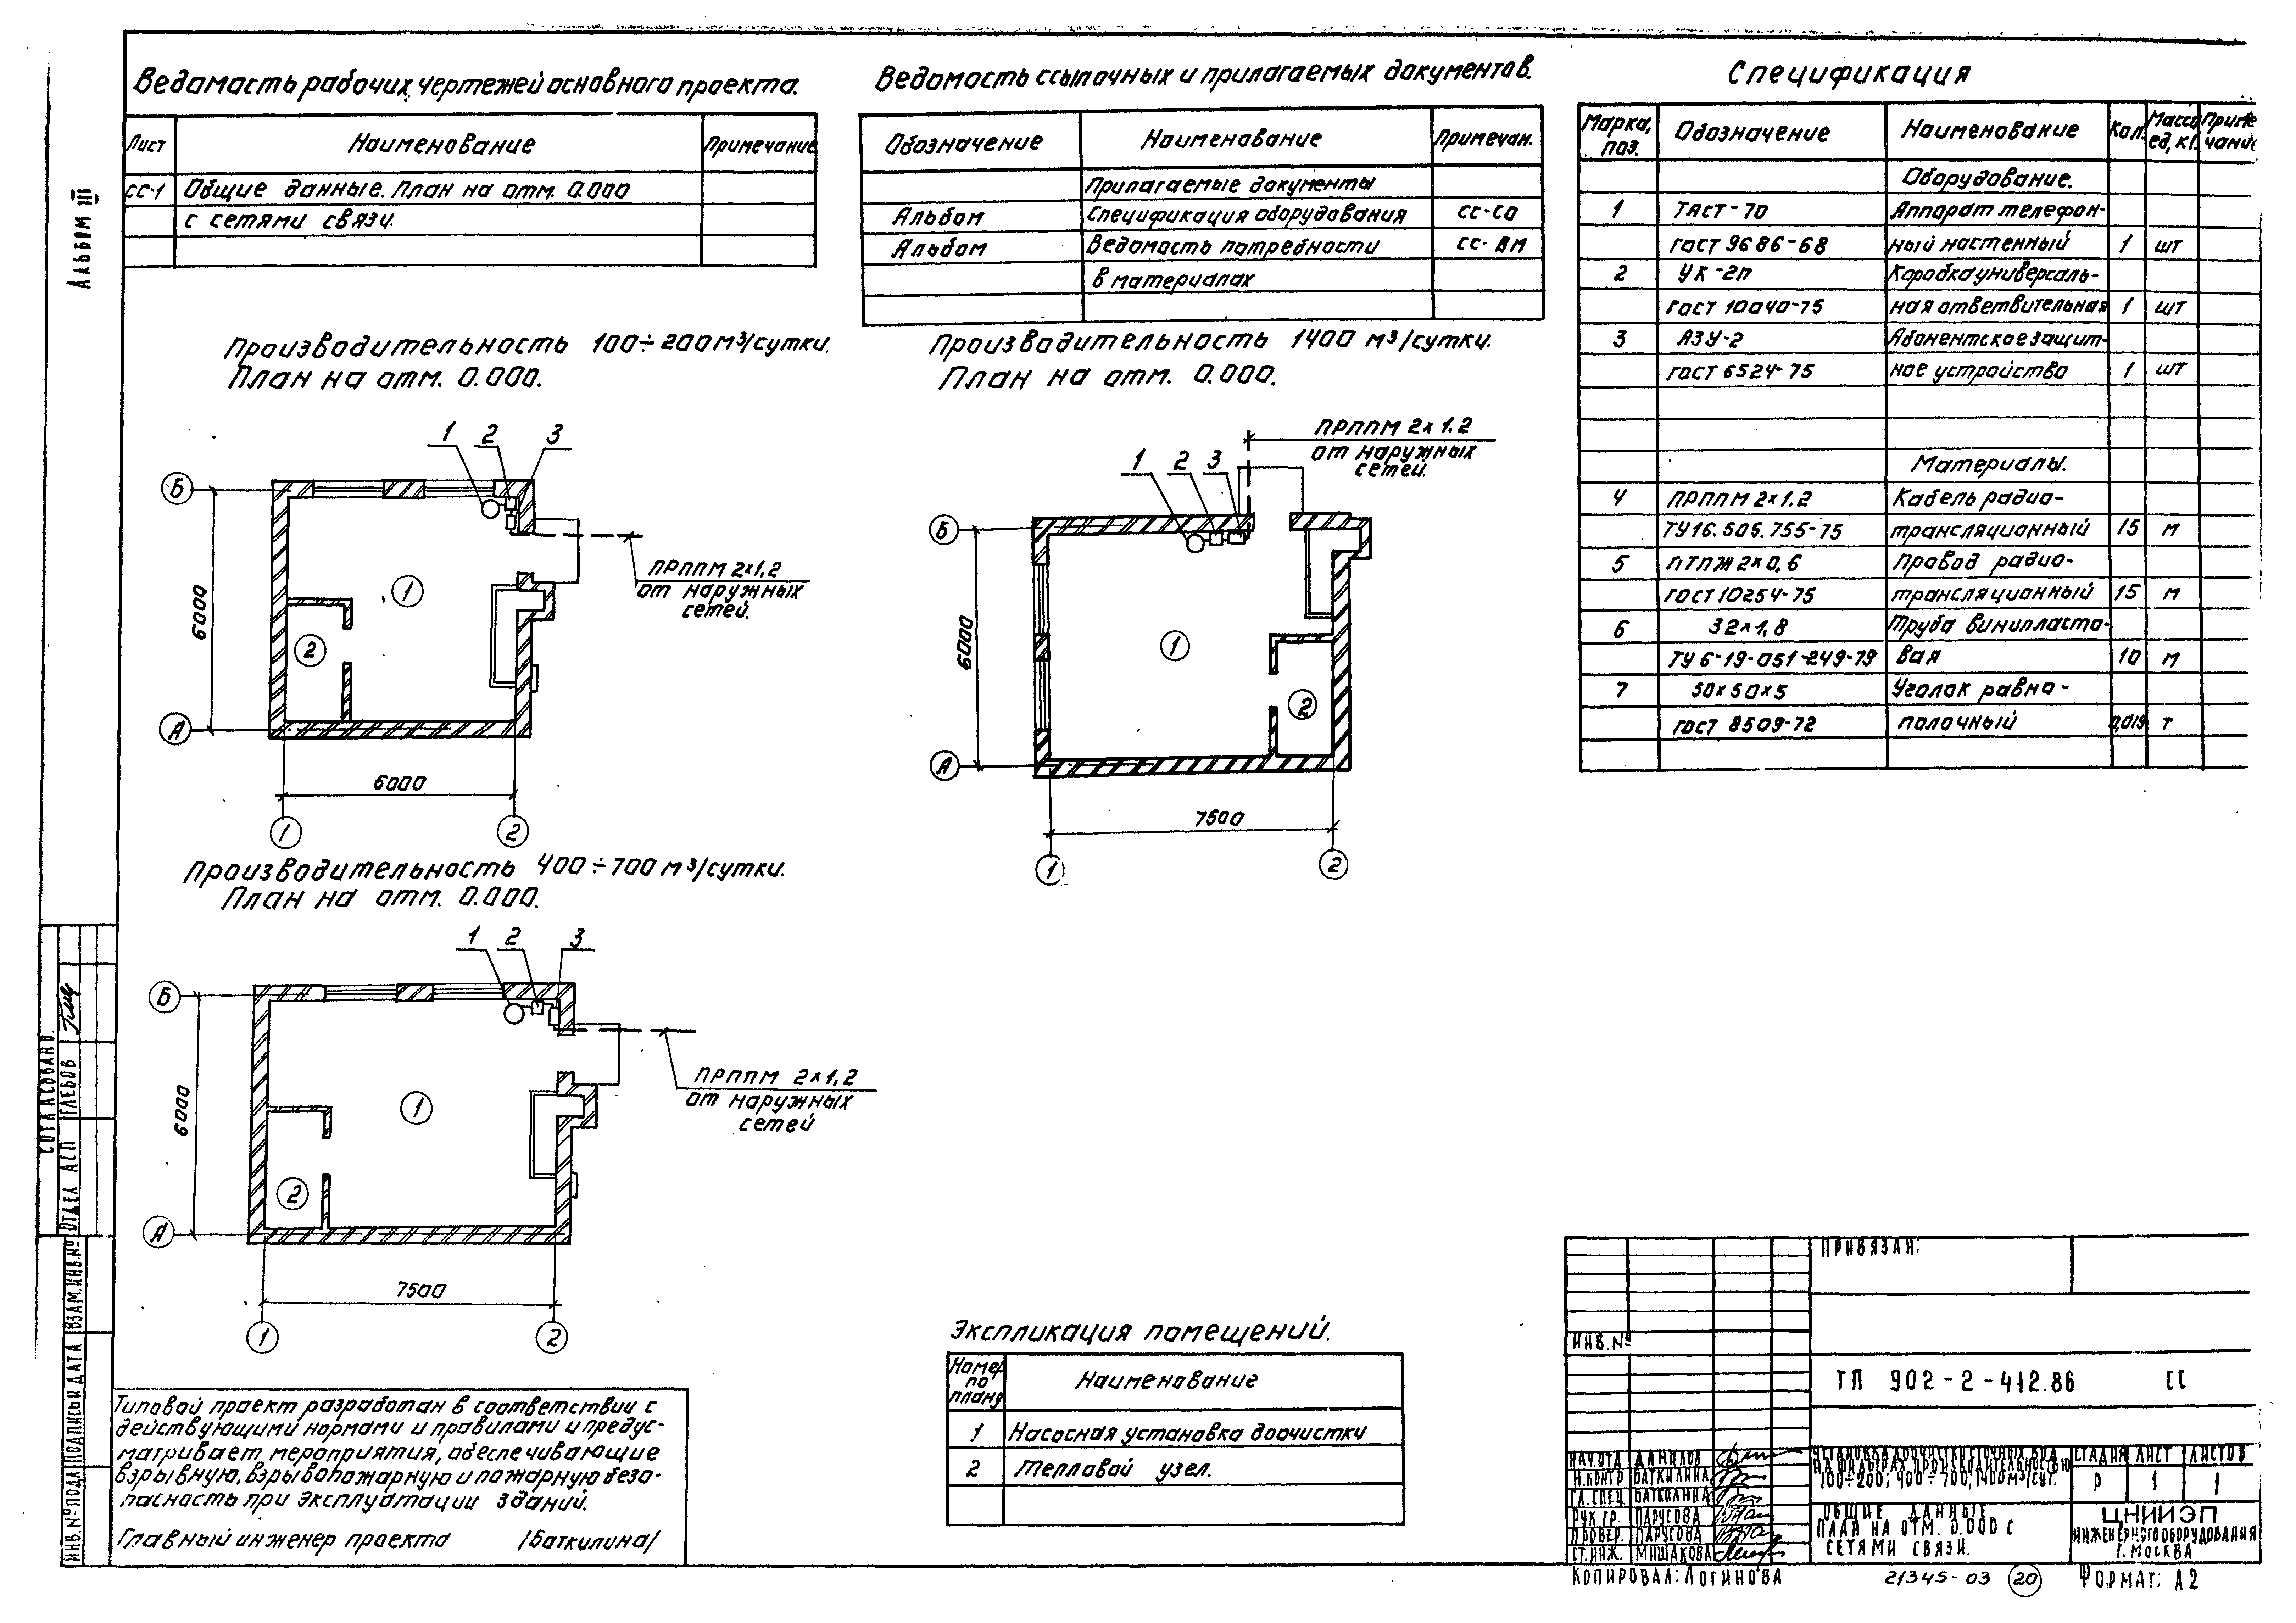 Альбом III
Ведомость рабочих чертежей основного проекта.
Лист Наименование Примечание
СС-1 Общие данные. План на отм. 0.000
с сетями связи.
Ведомость ссылочных и прилагаемых документов.
Обозначение Наименование Примечан.
Прилагаемые документы
Альбом Спецификация оборудования СС-СО
Альбом Ведомость потребности СС-ВМ
в материалах
Спецификация
Марка, поз. Обозначение Наименование Кол. Масса ед, кг. Приме чание
Оборудование.
1 ТАСТ-70 Аппарат телефон-
ГОСТ 9686-68 ный настенный 1 шт
2 УК-2п Коробка универсаль-
ГОСТ 10040-75 ная ответвительная 1 шт
3 АЗУ-2 Абонентское защит-
ГОСТ 6524-75 ное устройство 1 шт
Материалы.
4 ПРППМ 2×1,2 Кабель радио-
ТУ16.505.755-75 трансляционный 15 м
5 ПТПЖ 2×0,6 Провод радио-
ГОСТ 10254-75 трансляционный 15 м
6 32×1,8 Труба винипласто-
ТУ 6-19-051-249-79 вая 10 м
7 50×50×5 Уголок равно-
ГОСТ 8509-72 полочный 0,019 т
Производительность 100÷200м³/сутки.
План на отм. 0.000.
1 2 3
Б
6000
1
2
ПРППМ 2×1,2
от наружных
сетей.
А
6000
1 2
Производительность 1400 м³/сутки.
План на отм. 0.000.
ПРППМ 2×1.2
от наружных
сетей.
1 2 3
Б
6000
1
2
А
7500
1 2
Производительность 400÷700 м³/сутки.
План на отм. 0.000.
1 2 3
Б
ПРППМ 2×1,2
от наружных
сетей
6000
1
2
А
7500
1 2
Типовой проект разработан в соответствии с
действующими нормами и правилами и предус-
матривает мероприятия, обеспечивающие
взрывную, взрывопожарную и пожарную безо-
пасность при эксплуатации зданий.
Главный инженер проекта /Баткилина/
Экспликация помещений.
Номер по плану Наименование
1 Насосная установка доочистки
2 Тепловой узел.
СОГЛАСОВАНО.
ОТДЕЛ АСП ГЛЕБОВ
ИНВ.№ПОДЛ ПОДПИСЬ И ДАТА ВЗАМ.ИНВ.№
ПРИВЯЗАН:
ИНВ.№
ТП 902-2-412.86 СС
НАЧ.ОТД ДАНИЛОВ
Н.КОНТР БАТКИЛИНА
ГЛ.СПЕЦ БАТКИЛИНА
РУК ГР. ПАРУСОВА
ПРОВЕР. ПАРУСОВА
СТ.ИНЖ. МИШАКОВА
УСТАНОВКА ДООЧИСТКИ СТОЧНЫХ ВОД
НА ФИЛЬТРАХ ПРОИЗВОДИТЕЛЬНОСТЬЮ
100÷200; 400÷700; 1400 м³/сут.
СТАДИЯ ЛИСТ ЛИСТОВ
Р 1 1
ОБЩИЕ ДАННЫЕ.
ПЛАН НА ОТМ. 0.000 С
СЕТЯМИ СВЯЗИ.
ЦНИИЭП
ИНЖЕНЕРНОГО ОБОРУДОВАНИЯ
Г. МОСКВА
КОПИРОВАЛ: ЛОГИНОВА 21345-03 20 ФОРМАТ: А2